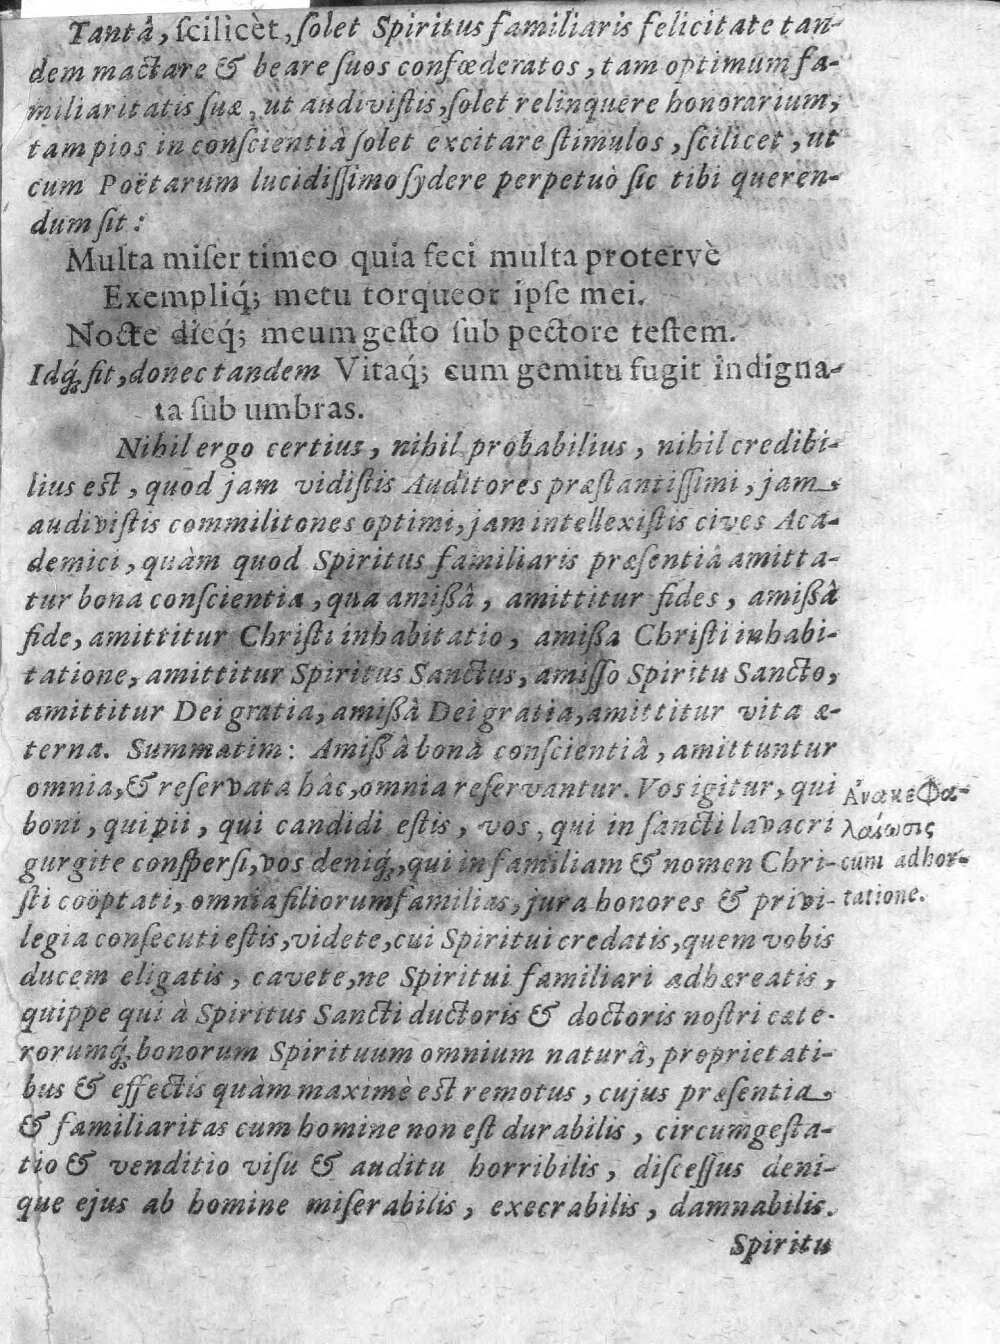 Tantâ, ſcilicèt, ſolet Spiritus familiaris felicitate tan-
dem mactare & beare ſuos confœderatos, tam optimum fa-
miliaritatis ſuæ, ut audiviſtis, ſolet relinquere honorarium,
tam pios in conſcientiâ ſolet excitare ſtimulos, ſcilicet, ut
cum Poëtarum lucidiſſimo ſydere perpetuò ſic tibi queren-
dum ſit:
Multa miſer timeo quia feci multa protervè
Exempliq́; metu torqueor ipſe mei.
Nocte dieq́; meum geſto ſub pectore teſtem.
Idq́; fit, donec tandem Vitaq́; cum gemitu fugit indigna-
ta ſub umbras.
Nihil ergo certius, nihil probabilius, nihil credibi-
lius est, quod jam vidiſtis Auditores præſtantiſſimi, jam
audiviſtis commilitones optimi, jam intellexiſtis cives Aca-
demici, quàm quod Spiritus familiaris præſentiâ amitta-
tur bona conſcientia, qua amißâ, amittitur fides, amißâ
fide, amittitur Chriſti inhabitatio, amißa Chriſti inhabi-
tatione, amittitur Spiritus Sanctus, amiſſo Spiritu Sancto,
amittitur Dei gratia, amißâ Dei gratia, amittitur vita æ-
terna. Summatim: Amißâ bonâ conſcientiâ, amittuntur
omnia, & reſervata hâc, omnia reſervantur. Vos igitur, qui
boni, qui pii, qui candidi eſtis, vos, qui in ſancti lavacri
gurgite conſperſi, vos deniq́;, qui in familiam & nomen Chri-
ſti coöptati, omnia filiorumfamilias, jura honores & privi-
legia conſecuti eſtis, videte, cui Spiritui credatis, quem vobis
ducem eligatis, cavete, ne Spiritui familiari adhæreatis,
quippe qui à Spiritus Sancti ductoris & doctoris noſtri cæte-
rorumq́; bonorum Spirituum omnium naturâ, proprietati-
bus & effectis quàm maximè est remotus, cujus præſentia
& familiaritas cum homine non eſt durabilis, circumgeſta-
tio & venditio viſu & auditu horribilis, diſceſſus deni-
que ejus ab homine miſerabilis, execrabilis, damnabilis.
Spiritu
Ἀνακεφα-
λαίωσις
cum adhor-
tatione.